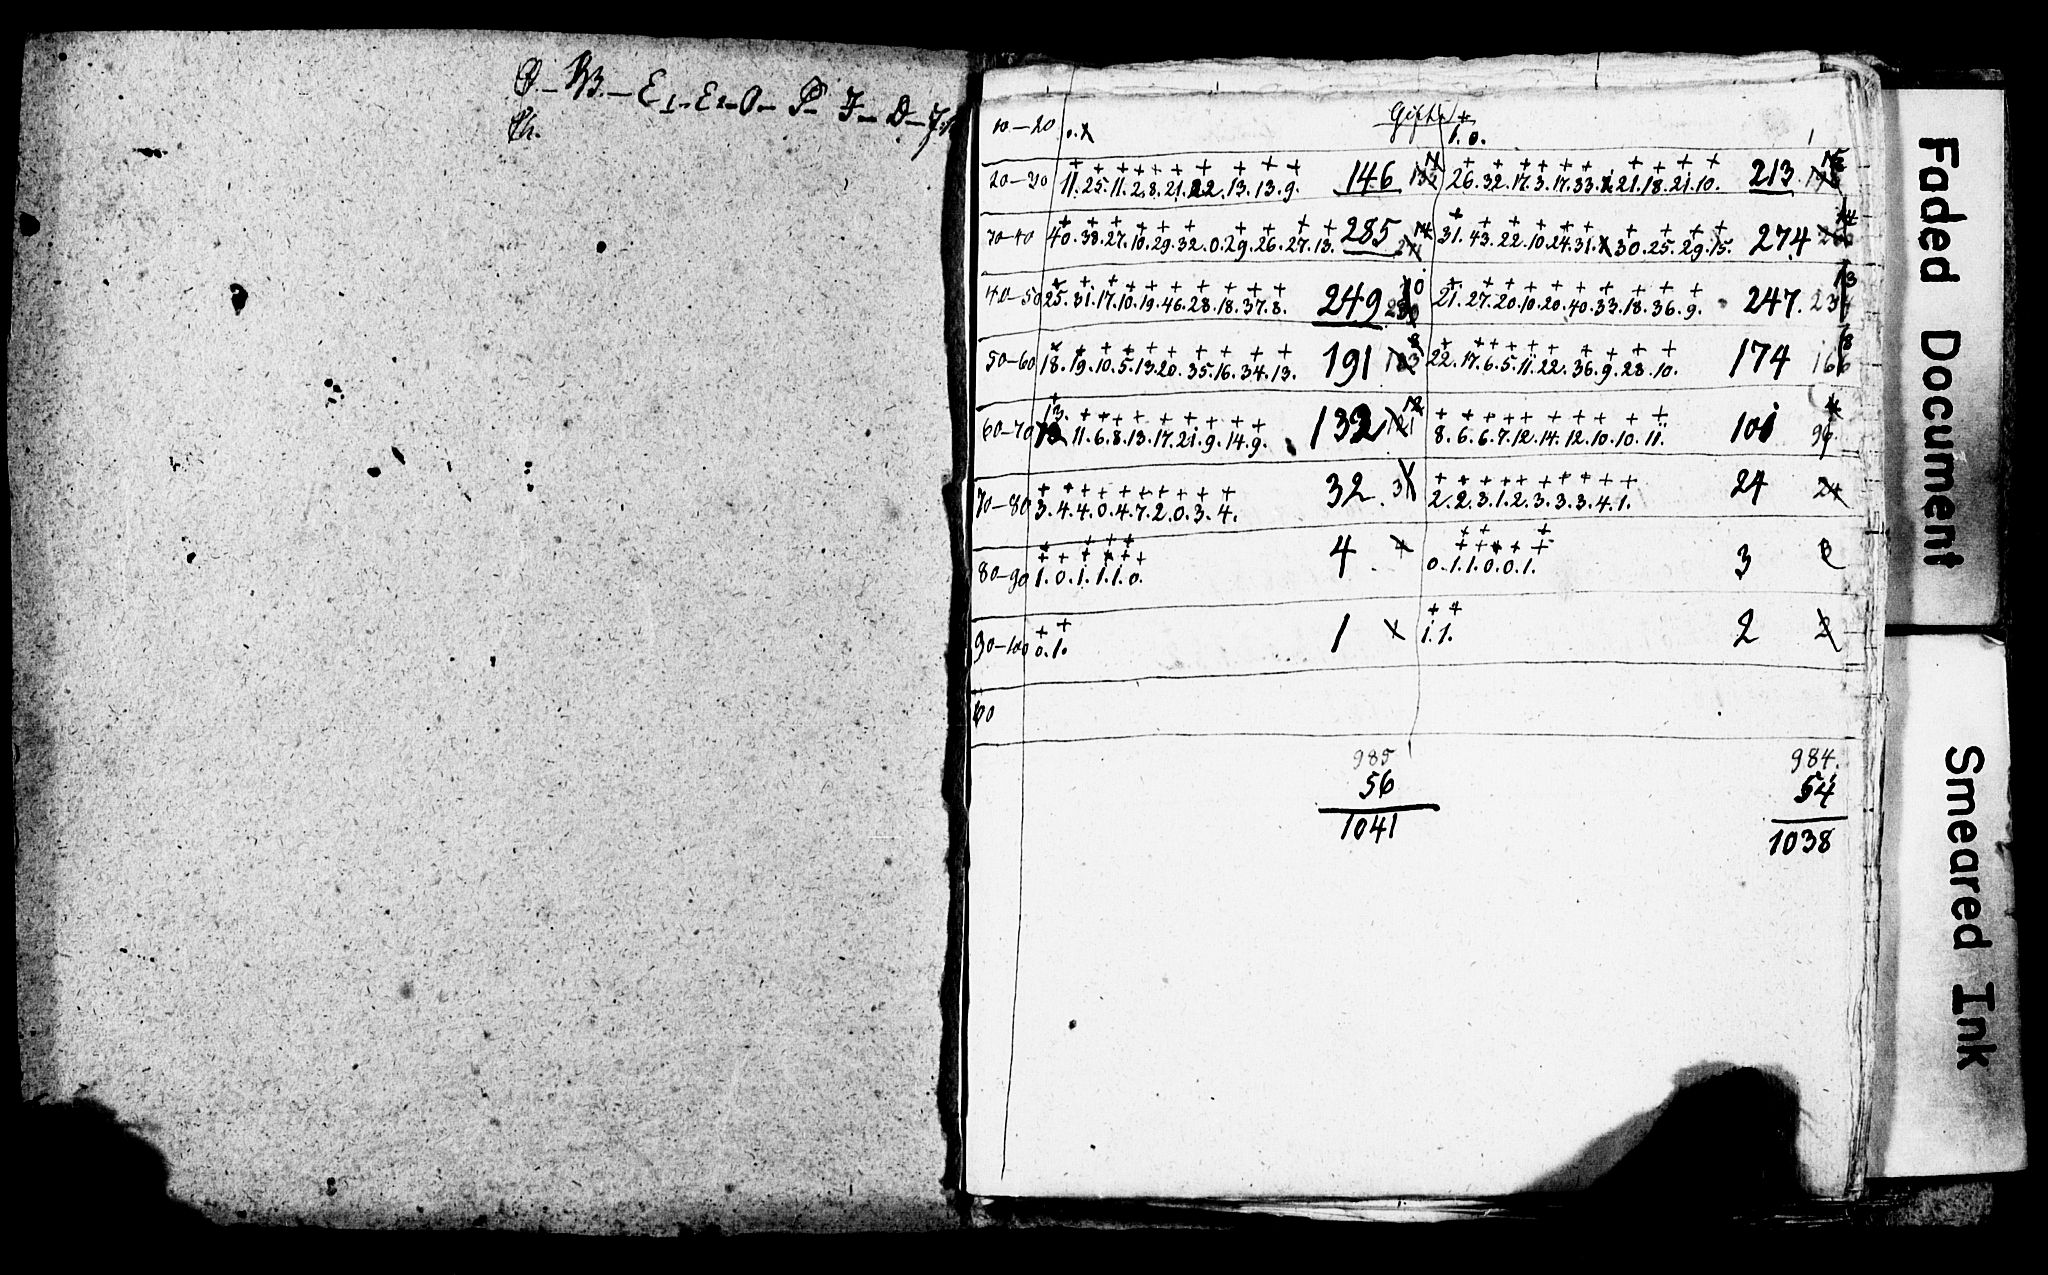 E 1- E2- O- P- F- D-
Ch.
Gifte
10-20 1. 0.
20-30 11. 25. 11. 2. 8. 21. 22. 13. 13. 9. 146 26. 32. 17. 3. 17. 33. 21. 18. 21. 10. 213
30-40 40. 38. 27. 10. 29. 32. 0. 29. 26. 27. 13. 285 31. 43. 22. 10. 24. 31. 30. 25. 29. 15. 274
40-50 25. 31. 17. 10. 19. 46. 28. 18. 37. 8. 249 21. 27. 20. 10. 20. 40. 33. 18. 36. 9. 247. 234 13
50-60 18. 19. 10. 5. 13. 20. 35. 16. 34. 13. 191 183 8 22. 17. 6. 5. 11. 22. 36. 9. 28. 10. 174 166 8
60-70 13. 11. 6. 8. 13. 17. 21. 9. 14. 9. 132 121 12 8. 6. 6. 7. 12. 14. 12. 10. 10. 11. 101 97
70-80 3. 4. 4. 0. 4. 7. 2. 0. 3. 4. 32 2. 2. 3. 1. 2. 3. 3. 3. 4. 1. 24 24
80-90 1. 0. 1. 1. 1. 0. 4 4 0. 1. 1. 0. 0. 1. 3
90-100 0. 1. 1 1. 1. 2 2
60
985 984.
56 54
1041 1038
Faded Document
Smeared Ink